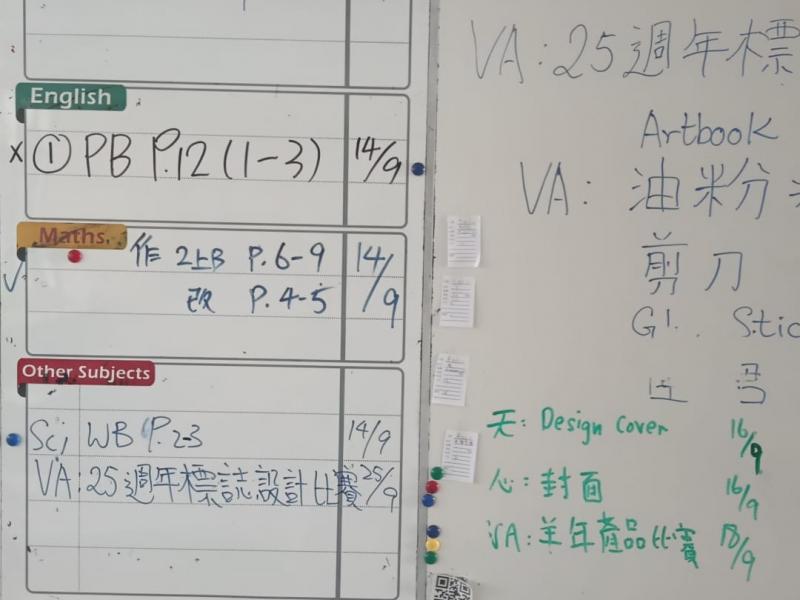 English
x ① PB P.12 (1-3) 14/9
Maths.
作 2上B P. 6-9 14/9
改 P. 4-5
Other Subjects
Sci WB P. 2-3 14/9
VA: 25週年標誌設計比賽 25/9
VA: 25週年標
Artbook
VA: 油粉
剪刀
Stic
Design Cover 16/9
心: 封面 16/9
VA: 羊年產品比賽 18/9